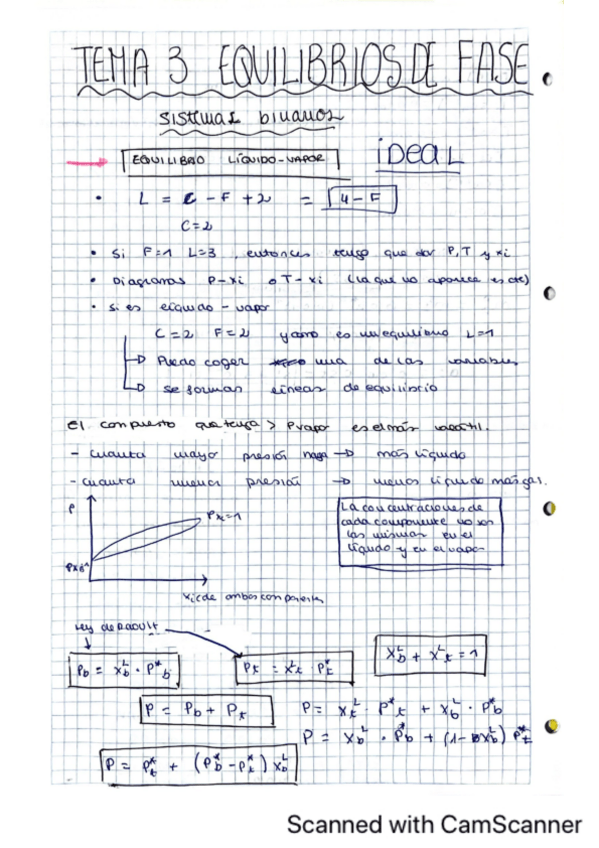 TEMA 3 EQUILIBRIOS DE FASE
Sistemas binarios
EQUILIBRIO LÍQUIDO-VAPOR IDEAL
• L = C - F + 2 = 4 - F
C = 2
• Si F=1 L=3, entonces tengo que dar P, T y xi
• Diagramas P-xi o T-xi (la que no aparece es cte)
• Si es líquido - vapor
C=2 F=2 y como es un equilibrio L=1
→ Puedo coger una de las variables
→ Se forman líneas de equilibrio
El compuesto que tenga > Pvapor es el más volátil.
- Cuanta mayor presión haga → más líquido
- Cuanta menor presión → menos líquido más gas.
P
Px=1
La concentraciones de
cada componente no son
las mismas en el
líquido y en el vapor
xi de ambos componentes
Ley de Raoult
Pb = xbᴸ · P*b
Pt = xtᴸ · Pt*
xbᴸ + xtᴸ = 1
P = Pb + Pt
P = xtᴸ · P*t + xbᴸ · P*b
P = xbᴸ · P*b + (1 - xbᴸ) P*t
P = Pt* + (Pb* - Pt*) xbᴸ
Scanned with CamScanner